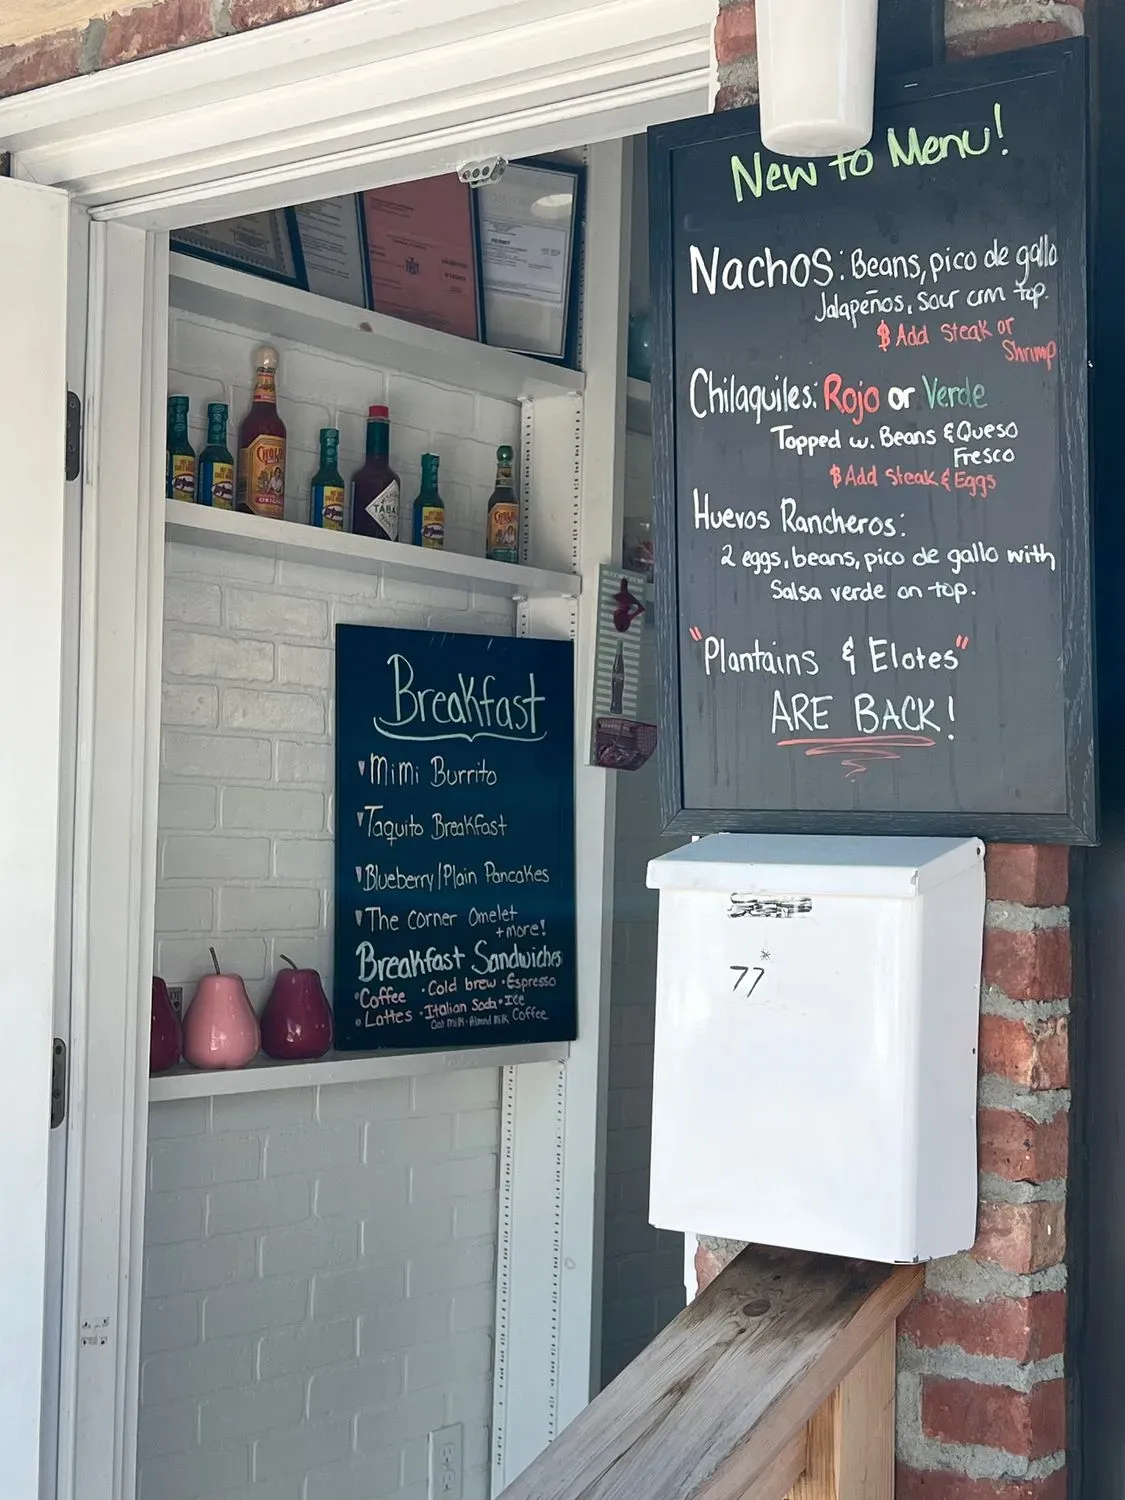 New to Menu!
Nachos: Beans, pico de gallo
Jalapeños, sour crm top.
$ Add Steak or
Shrimp
Chilaquiles: Rojo or Verde
Topped w. Beans & Queso
Fresco
$ Add Steak & Eggs
Huevos Rancheros:
2 eggs, beans, pico de gallo with
Salsa verde on top.
"Plantains & Elotes"
ARE BACK!
Breakfast
Mimi Burrito
Taquito Breakfast
Blueberry/Plain Pancakes
The Corner Omelet
+more!
Breakfast Sandwiches
Coffee • Cold brew • Espresso
Lattes • Italian Soda • Ice
Oat Milk • Almond Milk Coffee
77
PERMIT
CHOLULA
TABA